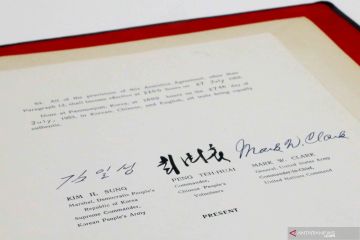 All of the provisions of this Armistice Agreement, other than
Paragraph 12, shall become effective at 2200 hours on 27 July 1953.
Done at Panmunjom, Korea, at 1000 hours on the 27th day of
July, 1953, in Korean, Chinese, and English, all texts being equally
authentic.
김일성
彭德怀
Mark W. Clark
KIM IL SUNG
Marshal, Democratic People's
Republic of Korea
Supreme Commander,
Korean People's Army
PENG TEH-HUAI
Commander,
Chinese People's
Volunteers
MARK W. CLARK
General, United States Army
Commander-in-Chief,
United Nations Command
PRESENT
ANTARANEWS